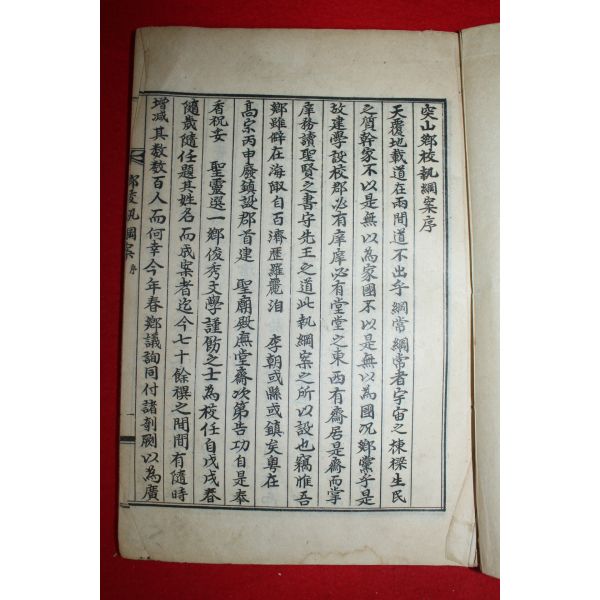 突山鄉校執綱案序
天覆地載道在兩間道不出乎綱常綱常者宇宙之棟樑生民
之質幹家不以是無以為家國不以是無以為國况鄉黨乎是
故建學設校郡必有庠庠必有堂堂之東西有齋居是齋而掌
庠務讀聖賢之書守先王之道此執綱案之所以設也竊惟吾
鄉雖僻在海陬自百濟歷羅麗洎 李朝或縣或鎮矣粤在
高宗丙申廢鎮設郡首建 聖廟殿廡堂齋次第告功自是奉
香祝妥 聖靈選一鄉俊秀文學謹飭之士為校任自戊戌春
隨歲隨任題其姓名而成案者迄今七十餘禩之間間有隨時
增減其数数百人而何幸今年春鄉議詢同付諸剞劂以為廣
鄉校執綱案 序